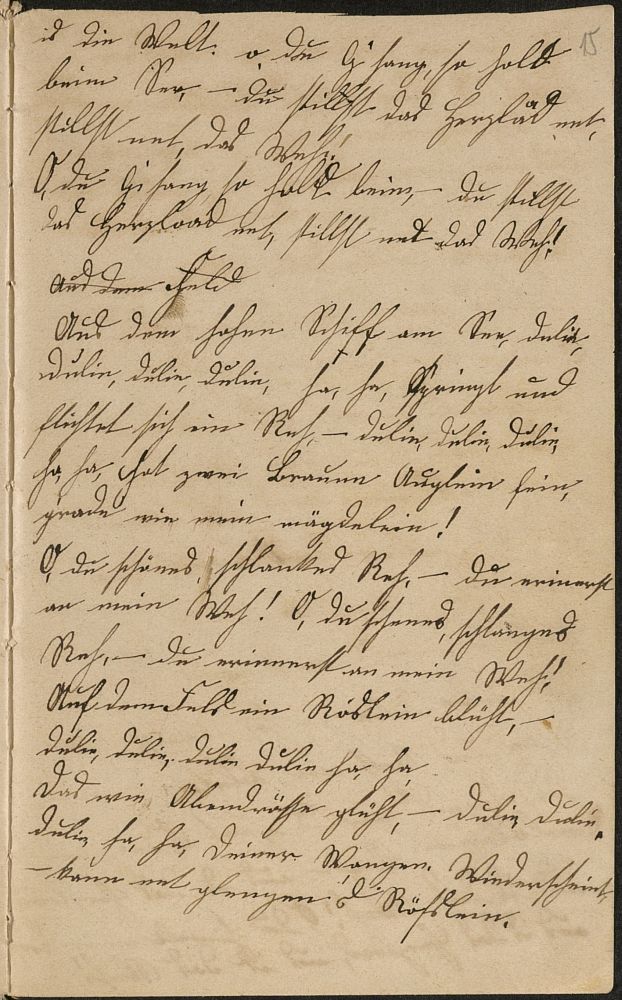 15
is die Welt. o du G'sang, so hold
beim See, – du stillst das Herzlad net,
stillst net, das Weh!
O, du G'sang, so hold beim, – du stillst
das Herzload net, stillst net das Weh!
Aus dem Feld
Aus dem hohen Schiff am See, dulie,
dulie, dulie, dulie, ha, ha, Springt und
flichtet sich ein Reh, – dulie, dulie, dulie,
ha, ha, hat zwei Braune Auglein fein,
grade wie mein mägdelein!
O, du schönes, schlankes Reh, – du erinerst
an mein Weh! O, du schenes, schlanges
Reh, – du erinnerst an mein Weh!
Auf dem Feld ein Röslein blüht, –
dulie, dulie, dulie dulie ha, ha,
Das wie Abendröthe glüht, – dulie, dulie,
dulie, ha, ha, deiner Wangen. Wiederschein,
– kann net glenzen d' Röslein.